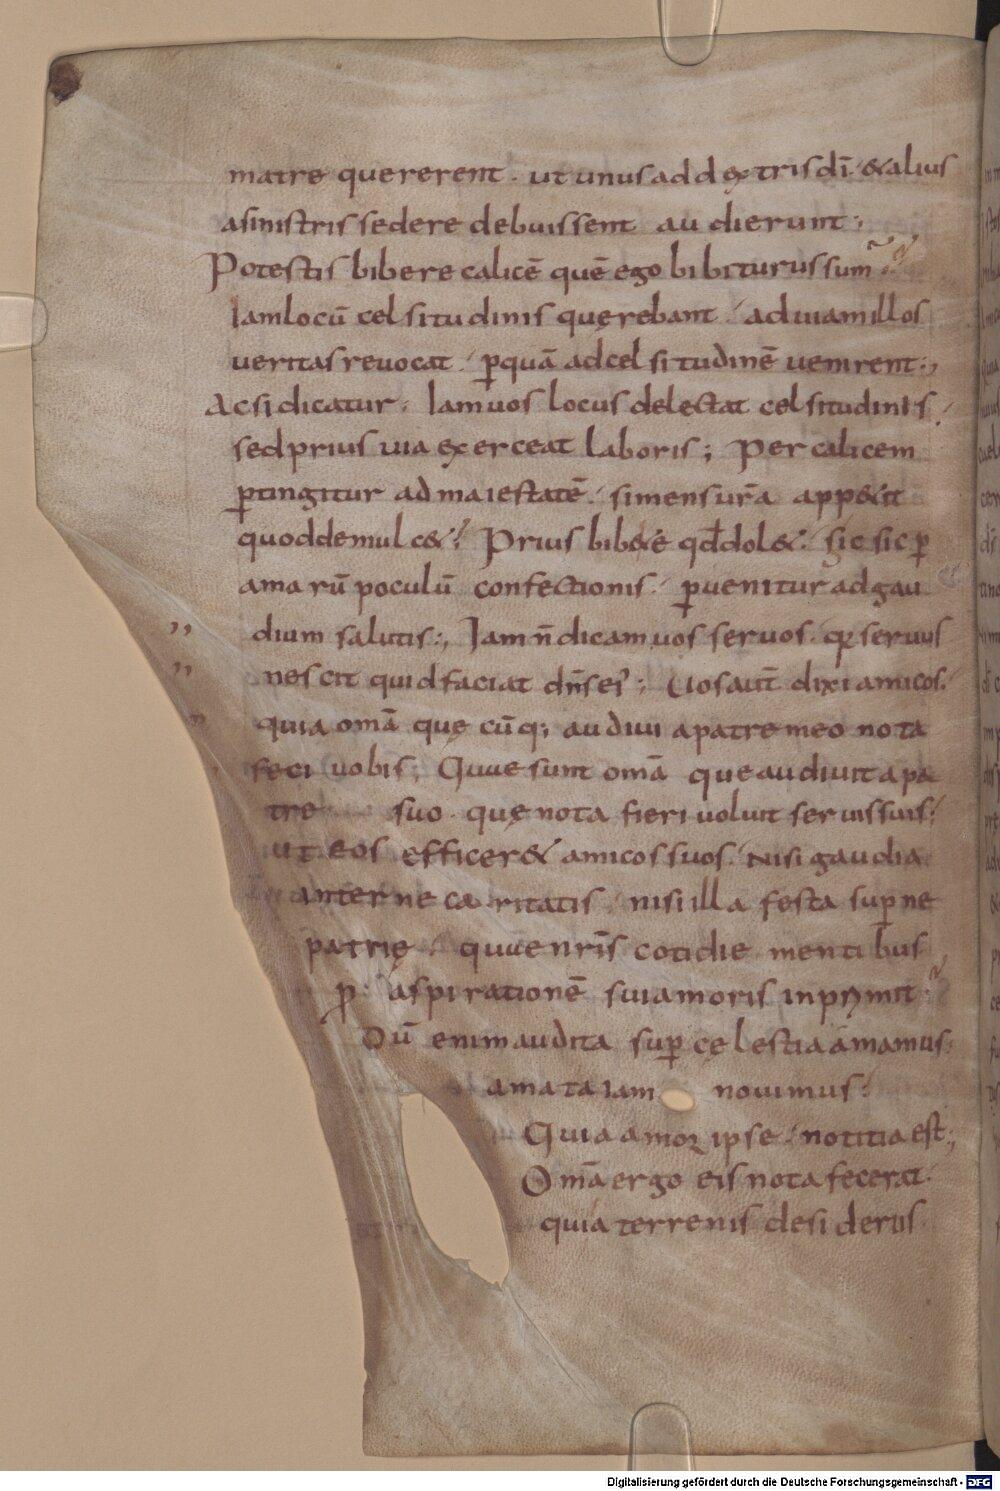 matre quererent · ut unus ad dextris di · & alius
asinistris sedere debuissent audierunt ;
Potestis bibere calicē quē ego bibiturus sum
Iam locū celsitudinis quęrebant · ad uiam illos
ueritas reuocat · ꝑquā ad celsitudinē uenirent ;
Ac si dicatur · Iam uos locus delectat celsitudinis ·
sed prius uia exerceat laboris ; Per calicem
ꝑtingitur ad maiestatē · si mens ur̄a app&it
quod demulc& · Prius bib&ē qđ dol& · sic sic ꝑ
amarū poculū confectionis · ꝑuenitur ad gau
dium salutis ; Iam n̄ dicam uos seruos · quia seruus
nescit quid faciat dn̄s ei' ; Uos aut̄ dixi amicos ·
quia omā quę cūq; audiui a patre meo nota
feci uobis ; Quae sunt omā que audiuit a pa
tre suo · quę nota fieri uoluit seruis suis ·
ut eos efficer& amicos suos · Nisi gaudia
anterne caritatis · nisi illa festa suꝑne
patrię · quae nr̄is cotidie mentibus
ꝑ aspirationē sui amoris inprimit
Dū enim audita suꝑcęlestia amamus ·
amata iam nouimus ·
Quia amor ipse · notitia est ;
Omā ergo eis nota fecerat ·
quia terrenis desideriis
Digitalisierung gefördert durch die Deutsche Forschungsgemeinschaft - DFG